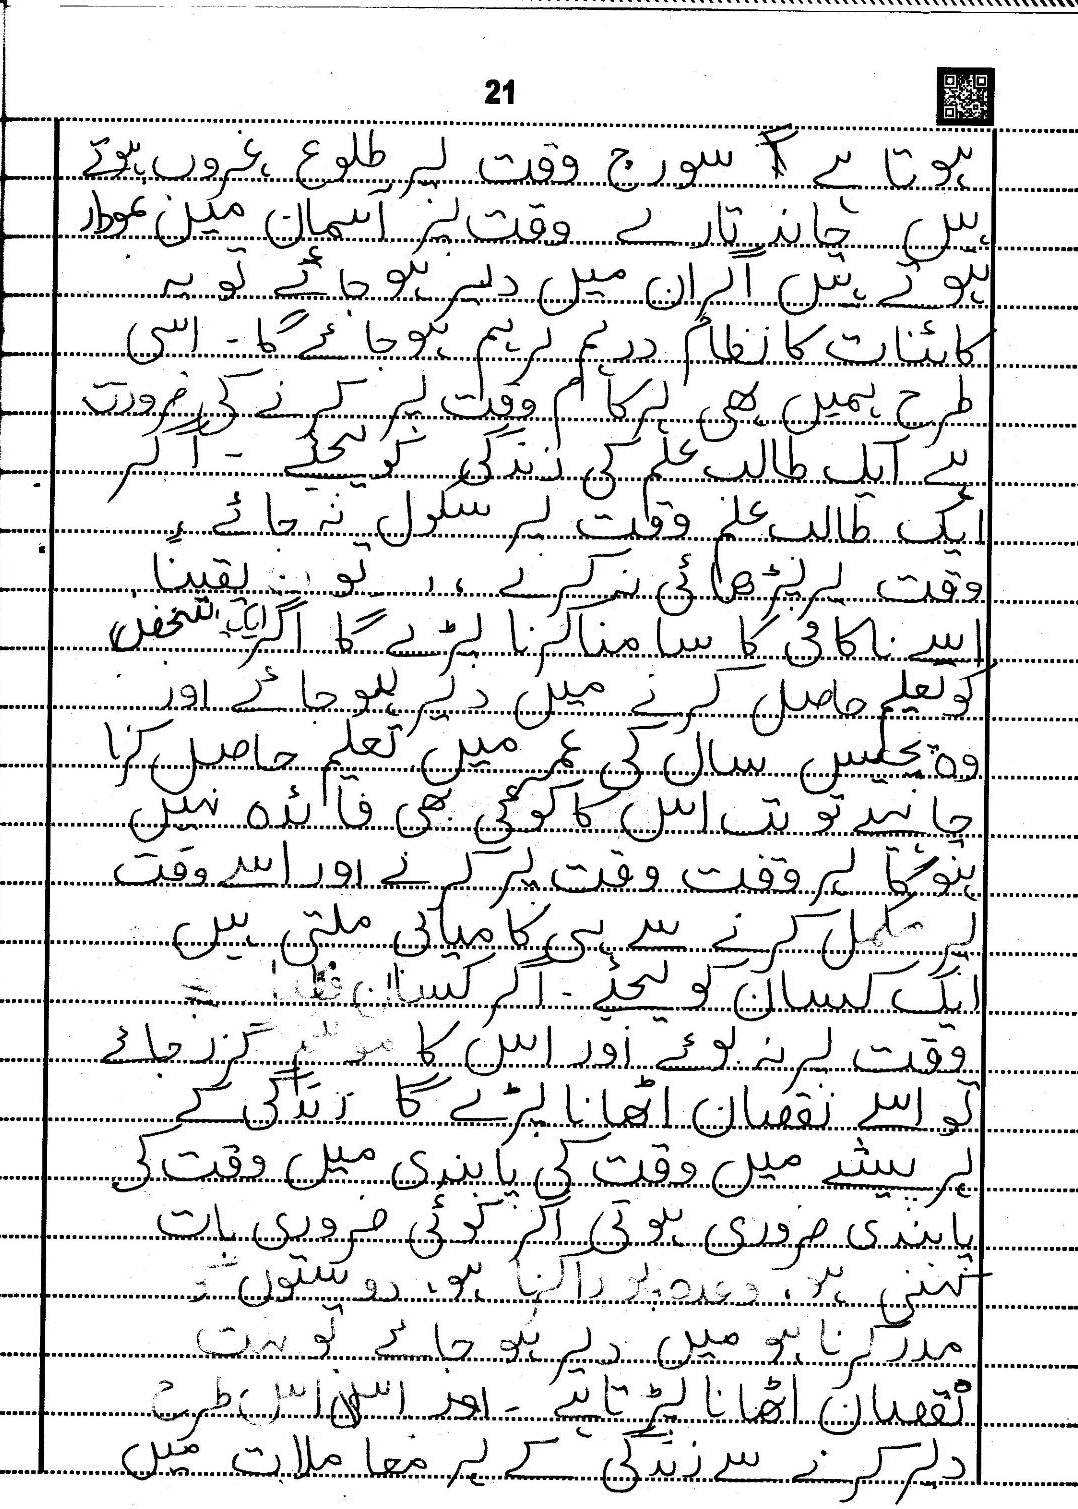 21
ہوتا ہے سورج وقت پر طلوع ،غروب ہوتے
ہیں چاند تارے وقت پر آسمان میں نمودار
ہوتے ہیں اگر ان میں دیر ہو جائے تو یہ
کائنات کا نظام درہم برہم ہو جائے گا۔ اسی
طرح ہمیں بھی ہر کام وقت پر کرنے کی ضرورت
ہے ایک طالب علم کی زندگی کو لیجئے ۔ اگر
ایک طالب علم وقت پر سکول نہ جائے ،
وقت پر پڑھائی نہ کرے ،، تو یقیناً
اسے ناکافی کا سامنا کرنا پڑے گا اگر ایک شخص
کو تعلیم حاصل کرنے میں دیر ہو جائے اور
وہ پچیس سال کی عمر میں تعلیم حاصل کرنا
چاہیے تو تب اس کا کوئی بھی فائدہ نہیں
ہو گا ہر وقت وقت پر کرنے اور اسے وقت
پر مکمل کرنے سے ہی کامیابی ملتی ہیں
ایک کسان کو لیجئے ۔ اگر کسان
وقت پر نہ بوئے اور اس کا موسم گزر جائے
تو اسے نقصان اٹھانا پڑے گا زندگی کے
ہر پیشے میں وقت کی پابندی میں وقت کی
پابندی ضروری ہوتی اگر کوئی ضروری بات
کہنی ہو، وعدہ پورا کرنا ہو، دوستوں
مدد کرنا ہو میں دیر ہو جائے تو بہت
نقصان اٹھانا پڑتا ہے ۔ اور اس طرح
دیر کرنے سے زندگی کے ہر معاملات میں